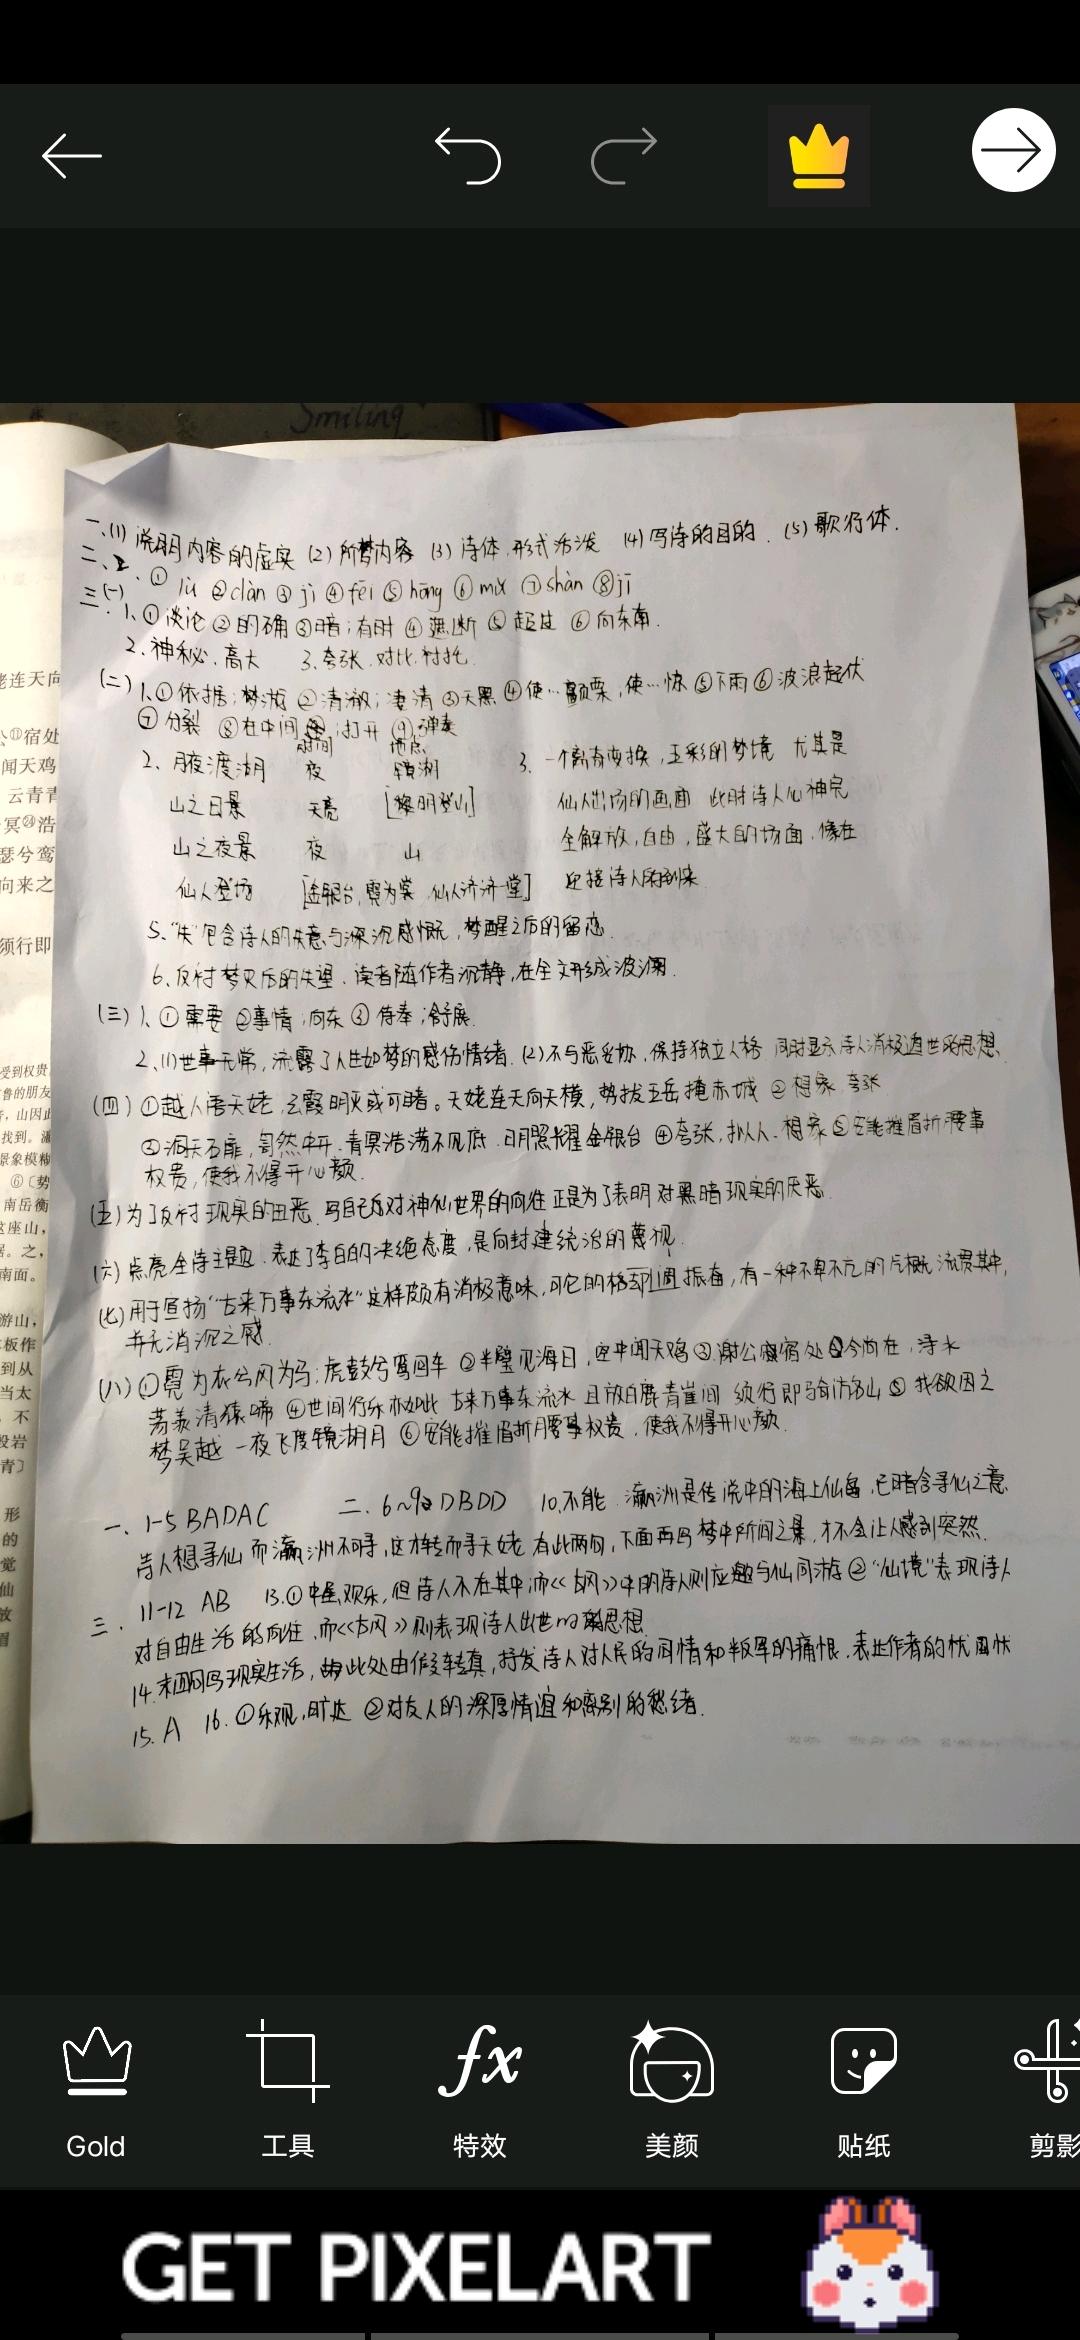 Smiling
一、(1) 说明内容的虚实 (2) 所梦内容 (3) 诗体,形式活泼 (4) 写诗的目的. (5) 歌行体.
二、① lù ② diàn ③ jì ④ fēi ⑤ hōng ⑥ mì ⑦ shàn ⑧ jī
三.(一) 1、① 谈论 ② 的确 ③ 暗;有时 ④ 遮断 ⑤ 超过 ⑥ 向东南.
2、神秘、高大 3、夸张.对比.衬托.
(二) 1、① 依据;梦游 ② 清澈;凄清 ③ 天黑 ④ 使…颤栗,使…惊 ⑤ 下雨 ⑥ 波浪起伏
⑦ 分裂 ⑧ 在中间;打开 ⑨ 弹奏
时间 地点
2、月夜渡湖 夜 镜湖 3、一个离奇变换,五彩的梦境 尤其是
山之日景 天亮 [黎明登山] 仙人出场的画面 此时诗人心神完
山之夜景 夜 山 全解放,自由,盛大的场面,像在
仙人登场 [金银台,霓为裳,仙人济济一堂] 迎接诗人的到来
5、“失”包含诗人的失意与深沉感慨,梦醒之后的留恋.
6、反衬梦灭后的失望.读者随作者沉静,在全文形成波澜.
(三) 1、① 需要 ② 事情;向东 ③ 侍奉;舒展.
2、(1) 世事无常,流露了人生如梦的感伤情绪.(2) 不与恶妥协,保持独立人格 同时显示诗人消极遁世的思想.
(四) ① 越人语天姥,云霞明灭或可睹。天姥连天向天横,势拔五岳掩赤城 ② 想象,夸张
③ 洞天石扉,訇然中开.青冥浩荡不见底.日月照耀金银台 ④ 夸张,拟人.想象 ⑤ 安能摧眉折腰事
权贵,使我不得开心颜.
(五) 为了反衬现实的丑恶.写自己对神仙世界的向往正是为了表明对黑暗现实的厌恶.
(六) 点亮全诗主题.表达了李白的决绝态度,是向封建统治的蔑视.
(七) 用于宣扬“古来万事东流水”这样颇有消极意味,可它的格调振奋,有一种不卑不亢的气概流贯其中,
并无消沉之感.
(八) ① 霓为衣兮风为马;虎鼓兮鸾回车 ② 半壁见海日,空中闻天鸡 ③ 谢公宿处今尚在,渌水
荡漾清猿啼 ④ 世间行乐亦如此 古来万事东流水 且放白鹿青崖间 须行即骑访名山 ⑤ 我欲因之
梦吴越 一夜飞度镜湖月 ⑥ 安能摧眉折腰事权贵,使我不得开心颜.
一、1-5 BADAC 二、6~9 DBDD 10.不能.瀛洲是传说中的海上仙岛,已暗含寻仙之意
诗人想寻仙而瀛洲不可寻,这才转而寻天姥 有此两句,下面再写梦中所间之景,才不会让人感到突然.
三、11-12 AB 13.① 欢乐,但诗人不在其中;而《古风》中的诗人则应邀与仙同游 ② “仙境”表现诗人
对自由生活的向往.而《古风》则表现诗人出世的思想.
14.末四句写现实生活,此处由假转真,抒发诗人对人民的同情和叛军的痛恨.表达作者的忧国忧
15. A 16. ① 乐观,旷达 ② 对友人的深厚情谊和离别的愁绪.
Gold 工具 特效 美颜 贴纸 剪影
GET PIXELART